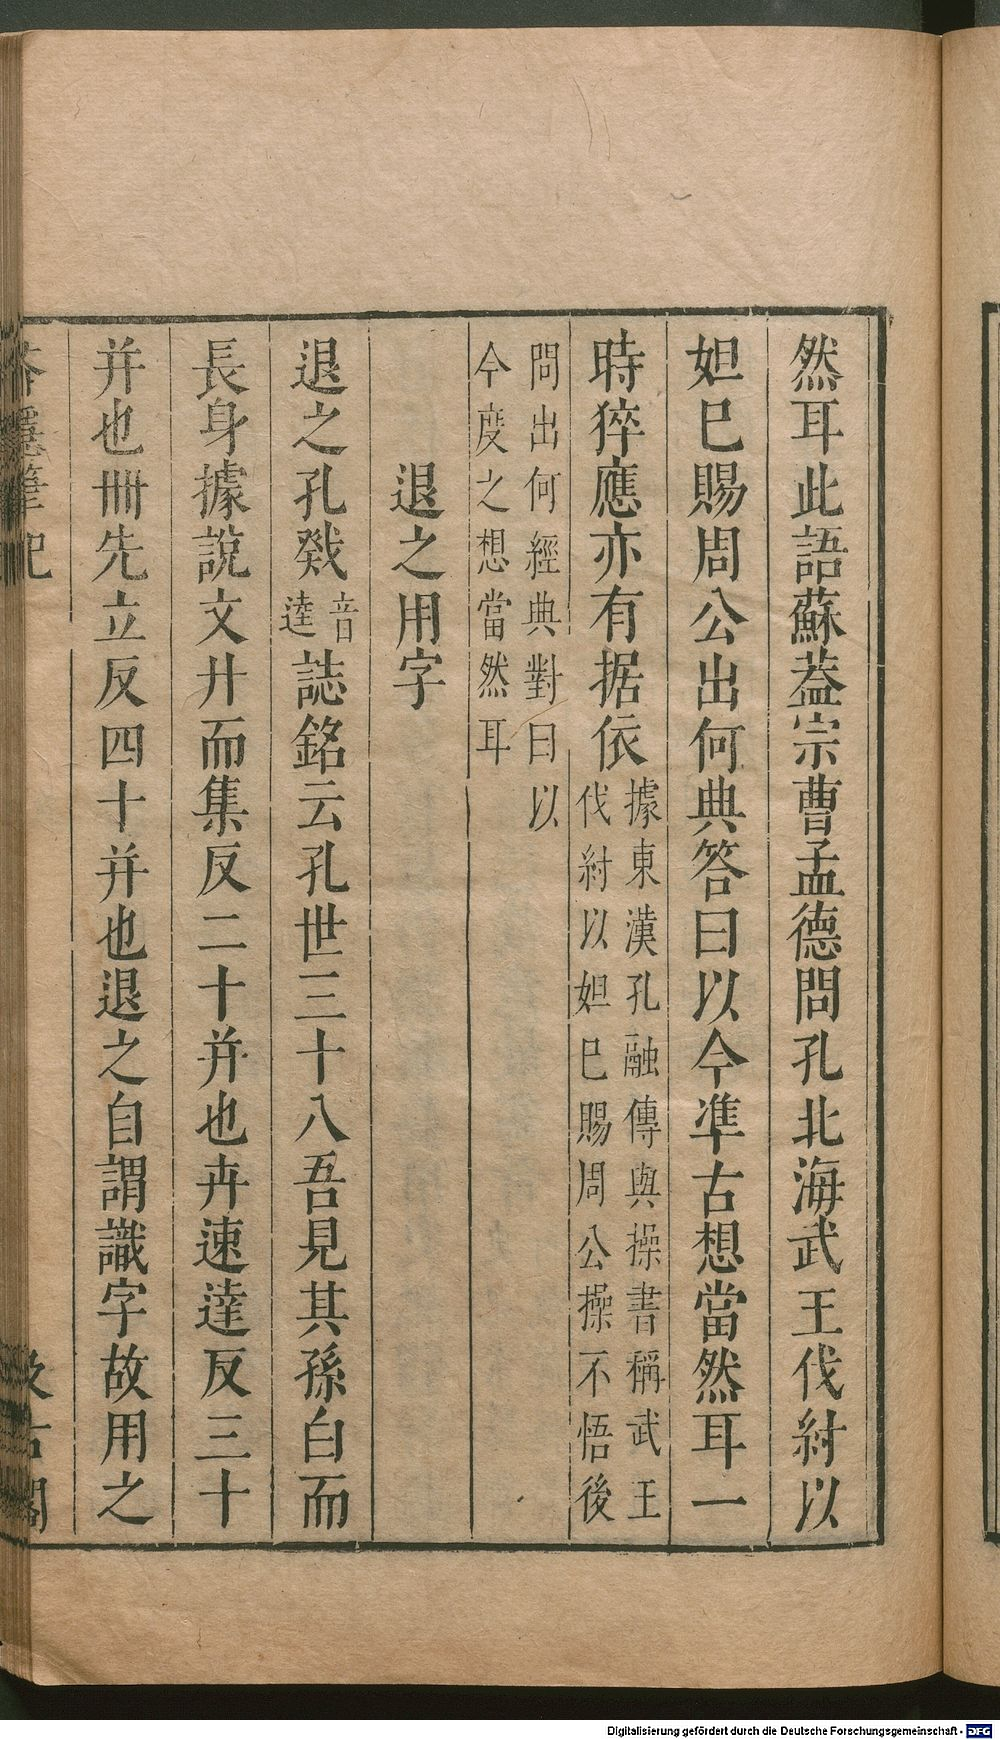 然耳此語蘇葢宗曹孟德問孔北海武王伐紂以
妲巳賜周公出何典答曰以今準古想當然耳一
時猝應亦有据依
據東漢孔融傳與操書稱武王
伐紂以妲巳賜周公操不悟後
問出何經典對曰以
今度之想當然耳
退之用字
退之孔戣
音
逵
誌銘云孔世三十八吾見其孫白而
長身據說文廾而集反二十并也卉速達反三十
并也卌先立反四十并也退之自謂識字故用之
筆記
古閣
Digitalisierung gefördert durch die Deutsche Forschungsgemeinschaft - DFG